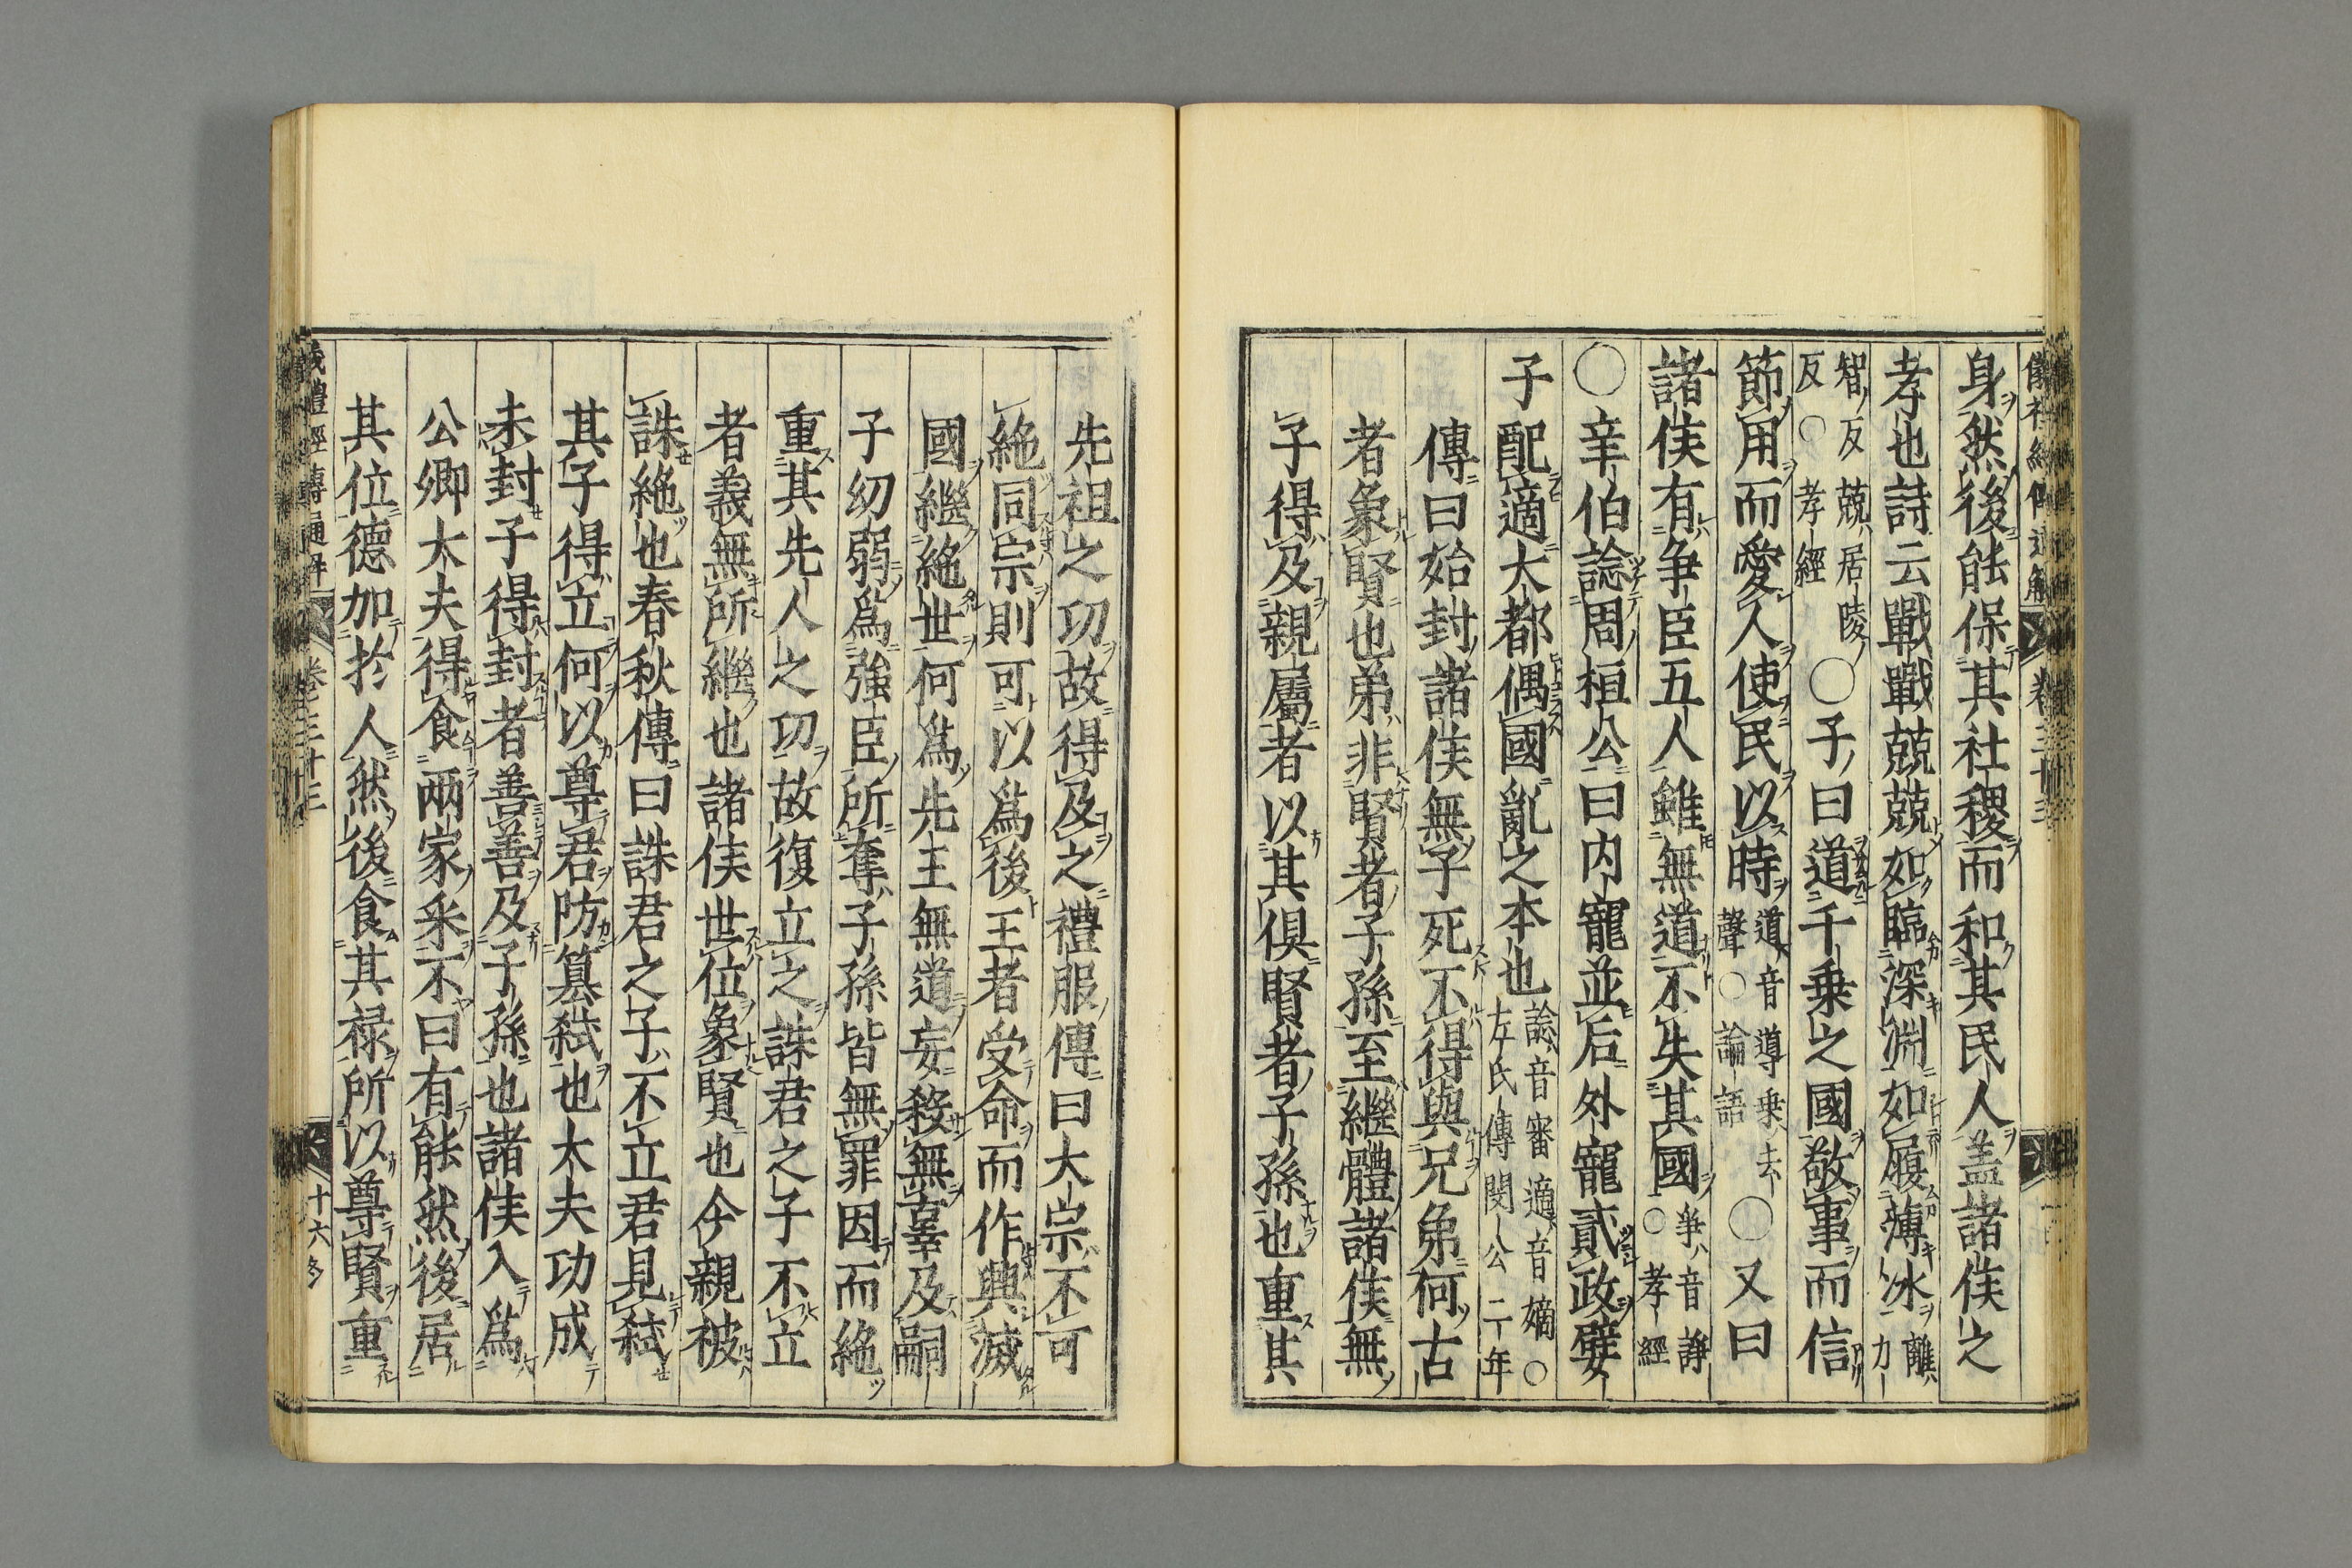 身然後能保其社稷而和其民人蓋諸侯之
孝也詩云戰戰兢兢如臨深淵如履薄冰離力
智反兢居陵反○孝經○子曰道千乗之國敬事而信
節用而愛人使民以時道音導乗去聲○論語○又曰
諸侯有争臣五人雖無道不失其國争音諍○孝經
○辛伯諗周桓公曰内寵並后外寵貳政嬖
子配適大都偶國亂之本也諗音審適音嫡○左氏傳閔公二年
傳曰始封諸侯無子死不得與兄弟何古
者象賢也弟非賢者子孫至繼體諸侯無
子得及親屬者以其倶賢者子孫也重其
先祖之功故得及之禮服傳曰大宗不可
絶同宗則可以爲後王者受命而作興滅
國繼絶世何爲先王無道妄殺無辜及嗣
子幼弱爲強臣所奪子孫皆無罪因而絶
重其先人之功故復立之誅君之子不立
者義無所繼也諸侯世位象賢也今親被
誅絶也春秋傳曰誅君之子不立君見弑
其子得立何以尊君防篡弑也大夫功成
未封子得封者善善及子孫也諸侯入爲
公卿大夫得食兩家采不曰有能然後居
其位德加於人然後食其禄所以尊賢重
儀禮經傳通解
卷三十三
十六